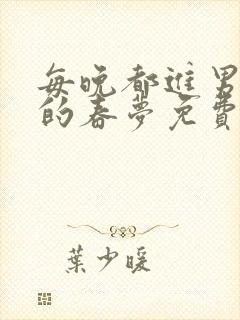 每晚都進男
的春夢免費
葉少暖